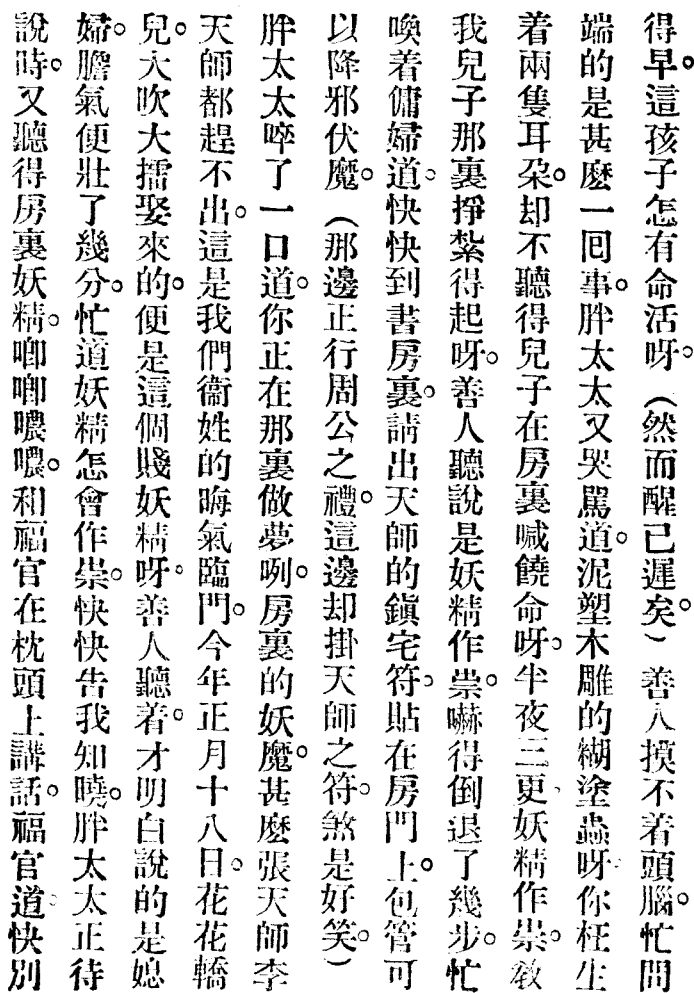 得早。這孩子怎有命活呀。（然而醒已遲矣。）善人摸不着頭腦。忙問
端的是甚麽一回事。胖太太又哭駡道。泥塑木雕的糊塗蟲呀。你枉生
着兩隻耳朶。却不聽得兒子在房裏喊饒命呀。半夜三更、妖精作祟。敎
我兒子那裏掙紮得起呀。善人聽說是妖精作祟。嚇得倒退了幾步。忙
喚着傭婦道。快快到書房裏。請出天師的鎭宅符。貼在房門上。包管可
以降邪伏魔。（那邊正行周公之禮。這邊却掛天師之符。煞是好笑。）
胖太太啐了一口道。你正在那裏做夢咧。房裏的妖魔。甚麽張天師李
天師都趕不出。這是我們衞姓的晦氣臨門。今年正月十八日。花花轎
兒。大吹大擂娶來的。便是這個賤妖精呀。善人聽着。才明白說的是媳
婦。膽氣便壯了幾分。忙道妖精怎會作祟。快快告我知曉。胖太太正待
說時。又聽得房裏妖精。喞喞噥噥。和福官在枕頭上講話。福官道、快別